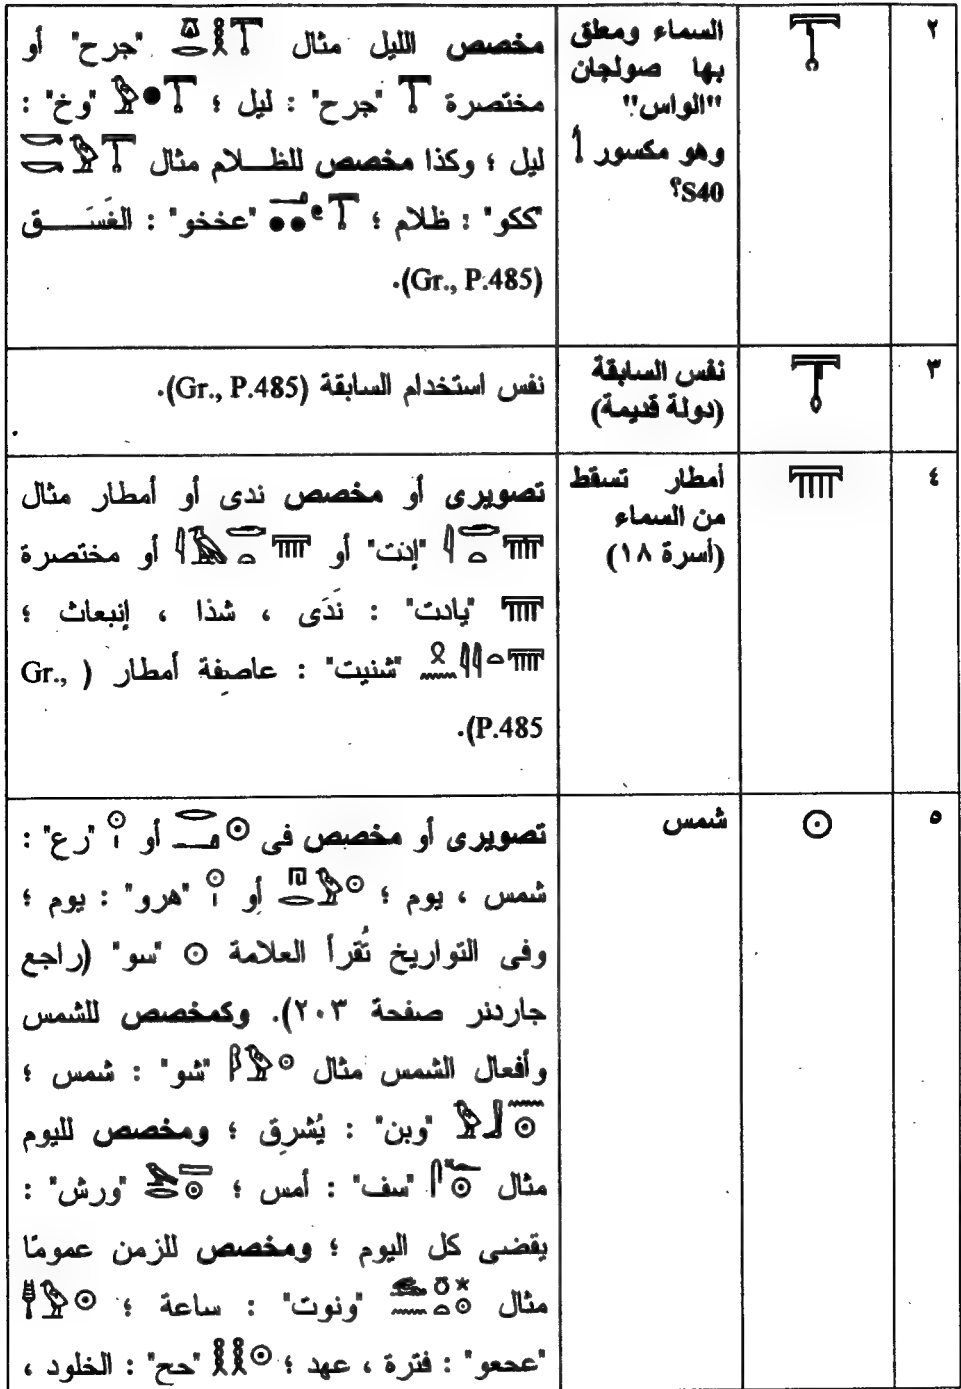 ٢
𓇰
السماء ومعلق
بها صولجان
"الواس"
وهو مكسور
S40؟
مخصص الليل مثال 𓎼𓂋𓎛𓇰 "جرح" أو
مختصرة 𓇰 "جرح" : ليل ؛ 𓅱𓐍𓇰 "وخ" :
ليل ؛ وكذا مخصص للظـــلام مثال 𓎡𓎡𓅱𓇰
"ككو" : ظلام ؛ 𓂝𓐍𓐍𓏲𓇰 "عخخو" : الغَسَـــــق
(Gr., P.485).
٣
𓇱
نفس السابقة
(دولة قديمة)
نفس استخدام السابقة (Gr., P.485).
٤
𓇲
أمطار تسقط
من السماء
(أسرة ١٨)
تصويرى أو مخصص ندى أو أمطار مثال
𓇋𓂧𓏏𓇲 "إدت" أو 𓇋𓄿𓂧𓏏𓇲 أو مختصرة
𓇲 "يادت" : نَدَى ، شذا ، إنبعاث ؛
𓍲𓈖𓇋𓇋𓏏𓇲 "شنيت" : عاصفة أمطار (Gr.,
P.485).
٥
𓇳
شمس
تصويرى أو مخصص فى 𓂋𓂝𓇳 أو 𓇳𓏤 "رع" :
شمس ، يوم ؛ 𓉔𓂋𓅱𓇳 أو 𓇳𓏤 "هرو" : يوم ؛
وفى التواريخ تُقرأ العلامة 𓇳 "سو" (راجع
جاردنر صفحة ٢٠٣). وكمخصص للشمس
وأفعال الشمس مثال 𓆄𓅱𓇳 "شو" : شمس ؛
𓅱𓃀𓈖𓇳 "وبن" : يُشرِق ؛ ومخصص لليوم
مثال 𓋴𓆑𓏴𓇳 "سف" : أمس ؛ 𓅨𓂋𓈙𓇳 "ورش" :
يقضى كل اليوم ؛ ومخصص للزمن عمومًا
مثال 𓃹𓈖𓏌𓏏𓇼𓇳 "ونوت" : ساعة ؛
"عحعو" : فترة ، عهد ؛ 𓎛𓎛𓇳 "حح" : الخلود ،